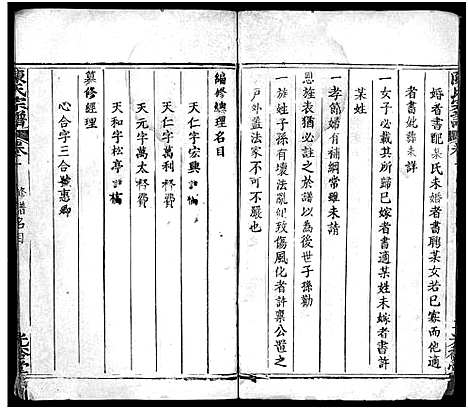 婚者書配某氏未婚者書聘某女若已嫁而他適
者書妣葬未詳
一女子必載其所歸已嫁者書適某姓未嫁者書許
某姓
一孝節婦有補綱常雖未請
恩旌表猶必註之於譜以為後世子孫勸
一子孫有壞法亂紀致傷風化者許禀公置之
戶外蓋法家不可不嚴也
編修總理名目
天仁字宏興
天和字松亭
天仁字萬利
天元字萬太
纂修經理
心合字三合 惠卿
陳氏宗譜
修譜名目